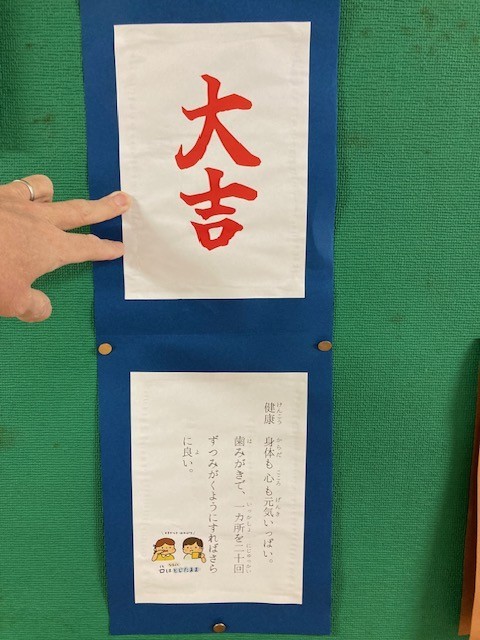 大吉
健康　身体も心も元気いっぱい。
歯みがきで、一カ所を二十回
ずつみがくようにすればさら
に良い。